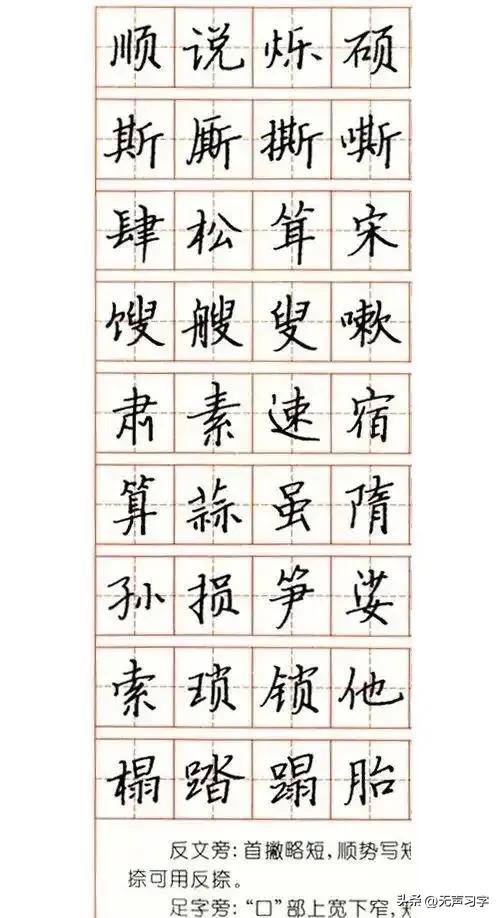 顺说烁硕
斯厮撕嘶
肆松耸宋
馊艘叟嗽
肃素速宿
算蒜虽隋
孙损笋娑
索琐锁他
榻踏蹋胎
反文旁：首撇略短，顺势写短
捺可用反捺。
足字旁：“口”部上宽下窄，
头条 @无声习字